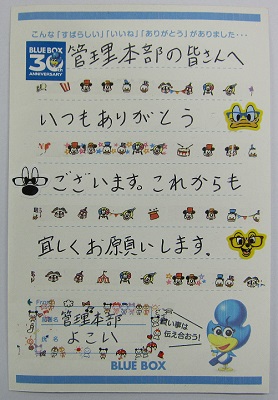 こんな「すばらしい」「いいね」「ありがとう」がありました・・・
BLUE BOX
30th
ANNIVERSARY
管理本部の皆さんへ
いつもありがとう
ございます。これからも
宜しくお願いします.
From
部署名
管理本部
氏名
よこい
良い事は
伝え合おう!
BLUE BOX